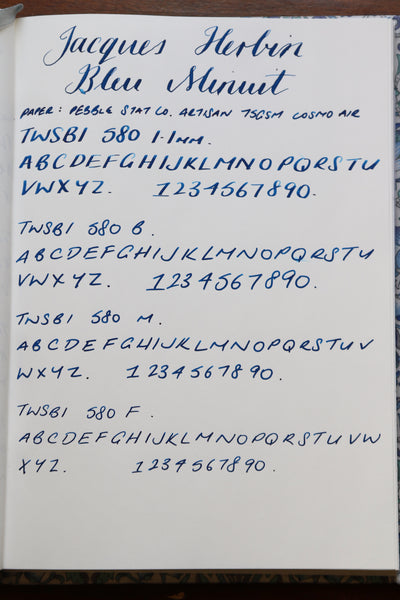 Jacques Herbin
Bleu Minuit
PAPER: PEBBLE STAT CO. ARTISAN 75GSM COSMO AIR
TWSBI 580 1.1MM.
ABCDEFGHIJKLMNOPQRSTU
VWXYZ. 1234567890.
TWSBI 580 B.
ABCDEFGHIJKLMNOPQRSTU
VWXYZ. 1234567890.
TWSBI 580 M.
ABCDEFGHIJKLMNOPQRSTUV
WXYZ. 1234567890.
TWSBI 580 F.
ABCDEFGHIJKLMNOPQRSTUVW
XYZ. 1234567890.